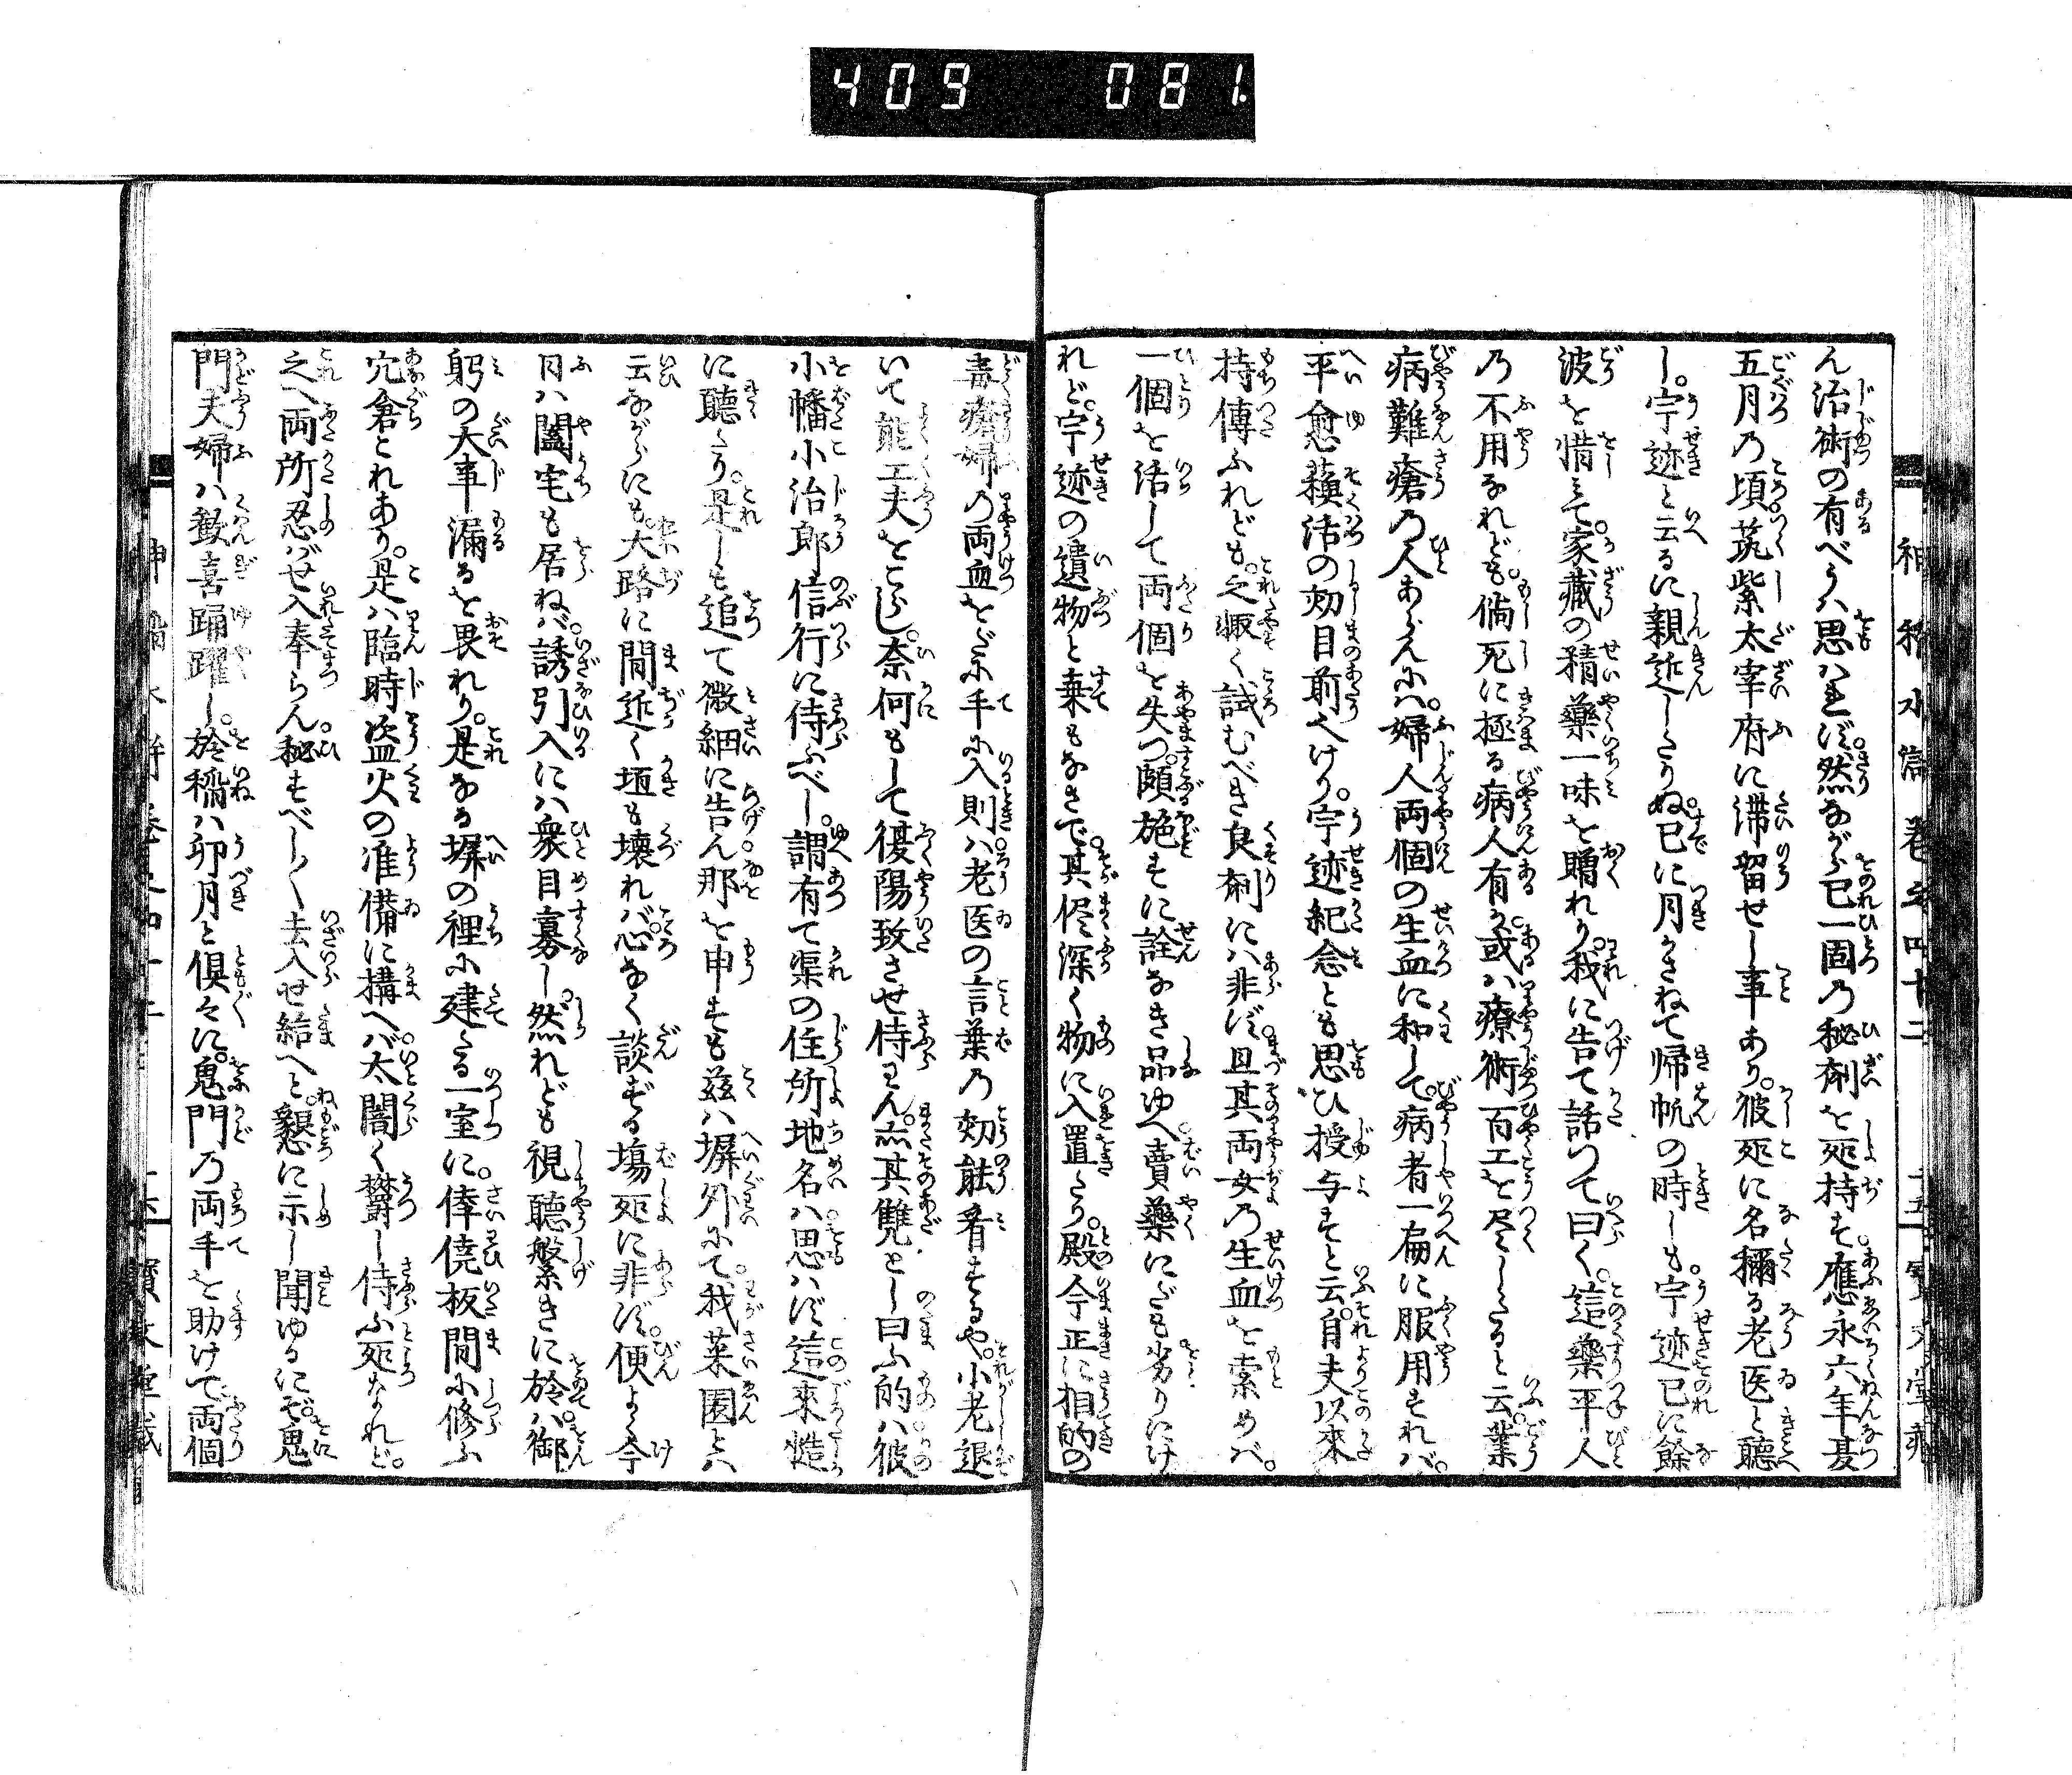 409 081
ん治術の有べうハ思ハれず然ながら已一固乃秘剤を所持す應永六年夏
五月乃頃筑紫太宰府に滞留せし事あり。彼所に名稱る老医と聽
し。宇迹と云るに親近しうぬ已に月かさねて帰帆の時しも宇迹已に餘
波を惜みて家藏の精藥一味を贈れり我に告て話つて曰く這藥平人
乃不用なれども倘死に極る病人有か或ハ療術百工を尽しうると云業
病難瘡乃人あらんにハ婦人両個の生血に和して病者一扁に服用すれバ
平愈蘓活の効目前べけり。宇迹紀念とも思ひ授与すと云自夫以來
持傳ふれども之輙く試むべき良剤にハ非ず且其両女乃生血を索めバ。
一個を活して両個を失つ。頗施すに詮なき品ゆへ賣藥にだも劣りにけ
れど。宇迹の遺物と棄もなさで其侭深く物に入置たり。殿今正に相的の
毒療婦の両血をだに手に入則ハ老医の言葉乃効能看するや。小老退
いて能工夫をこらし。奈何もして復陽致させ侍らん。亦其讐とし曰ふ的ハ彼
小幡小治郎信行に侍ふべし。謂有て渠の住所地名ハ思ハず這來慥
に聽たり。是しも追て微細に告ん那を申すも茲ハ塀外にて我菜園とハ
云ながらにも大路に間近く垣も壊れバ心なく談ずる塲所に非ず便よく今
日ハ闔宅も居ねバ誘引入にハ衆目寡し然れども視聽繁きに於ハ御
躬の大事漏るを畏れり。是なる塀の裡に建たる一室に。倖僥板間に修ふ
穴倉これあり。是ハ臨時盜火の准備に搆へバ太闇く欝し侍ふ所なれど。
之へ両所忍バせ入奉らん秘すべし〱去入せ給へと懇に示し聞ゆるにぞ鬼
門夫婦ハ歡喜踊躍し。於稲ハ卯月と倶々に鬼門乃両手を助けて両個